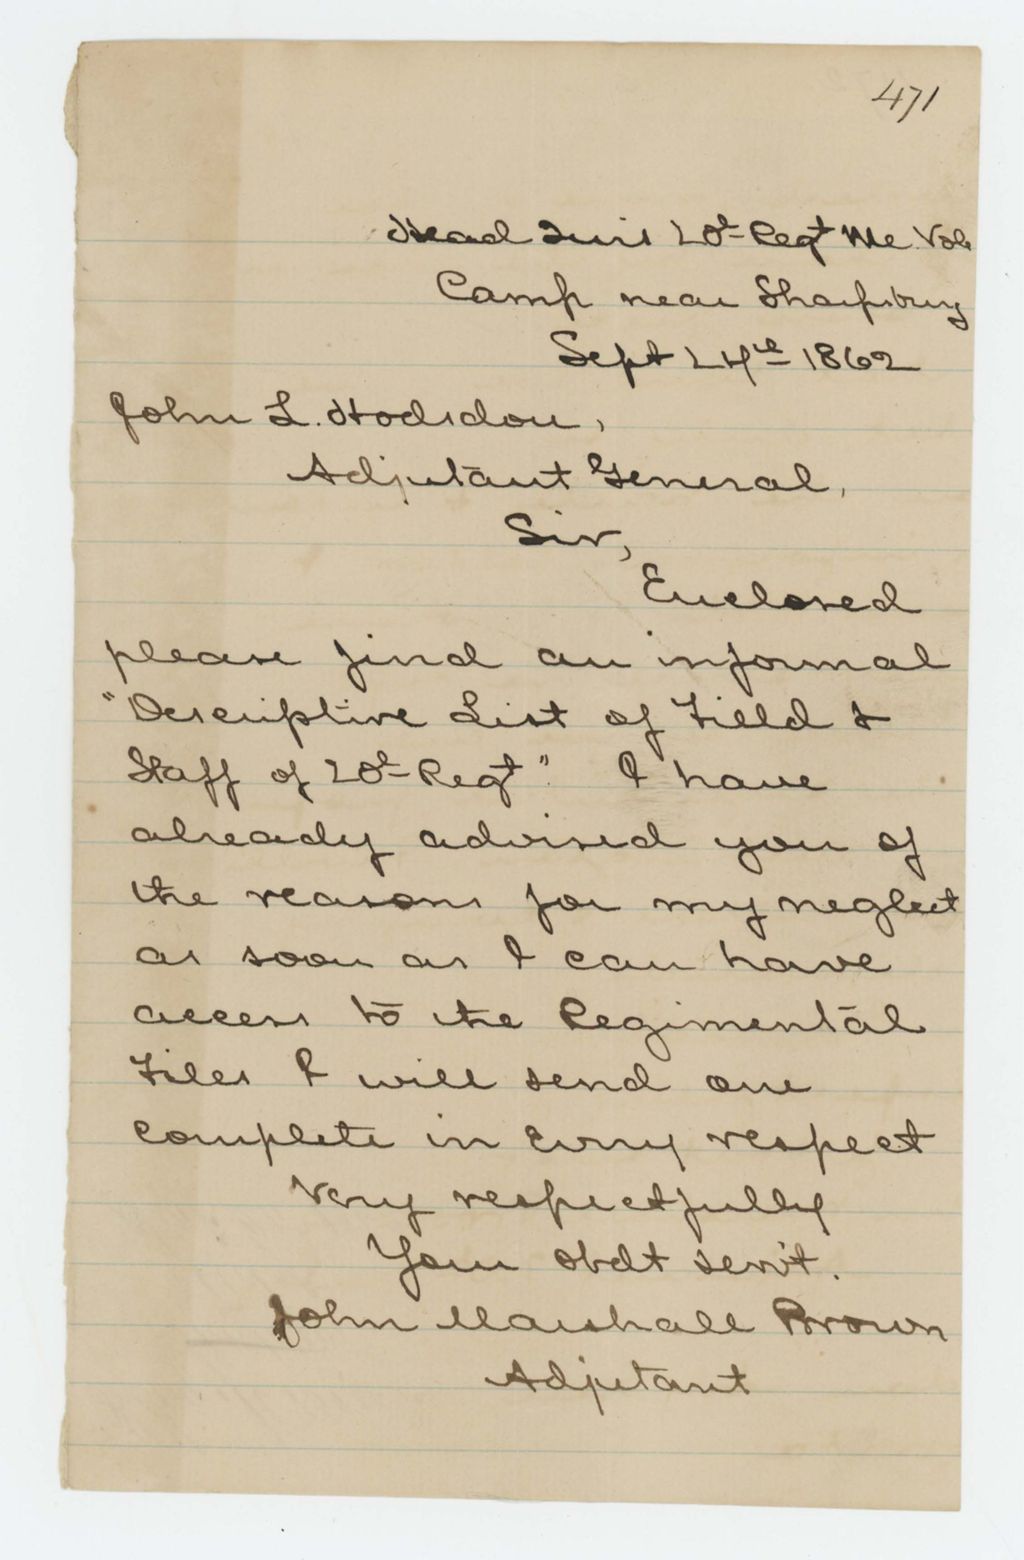 471
Head Qurs 20th Regt Me. Vols
Camp near Sharpsburg
Sept 24th 1862
John L. Hodsdon,
Adjutant General,
Sir,
Enclosed
please find an informal
"Descriptive List of Field &
Staff of 20th Regt". I have
already advised you of
the reasons for my neglect
as soon as I can have
access to the Regimental
Files I will send one
complete in every respect
Very respectfully
Your obdt servt.
John Marshall Brown
Adjutant